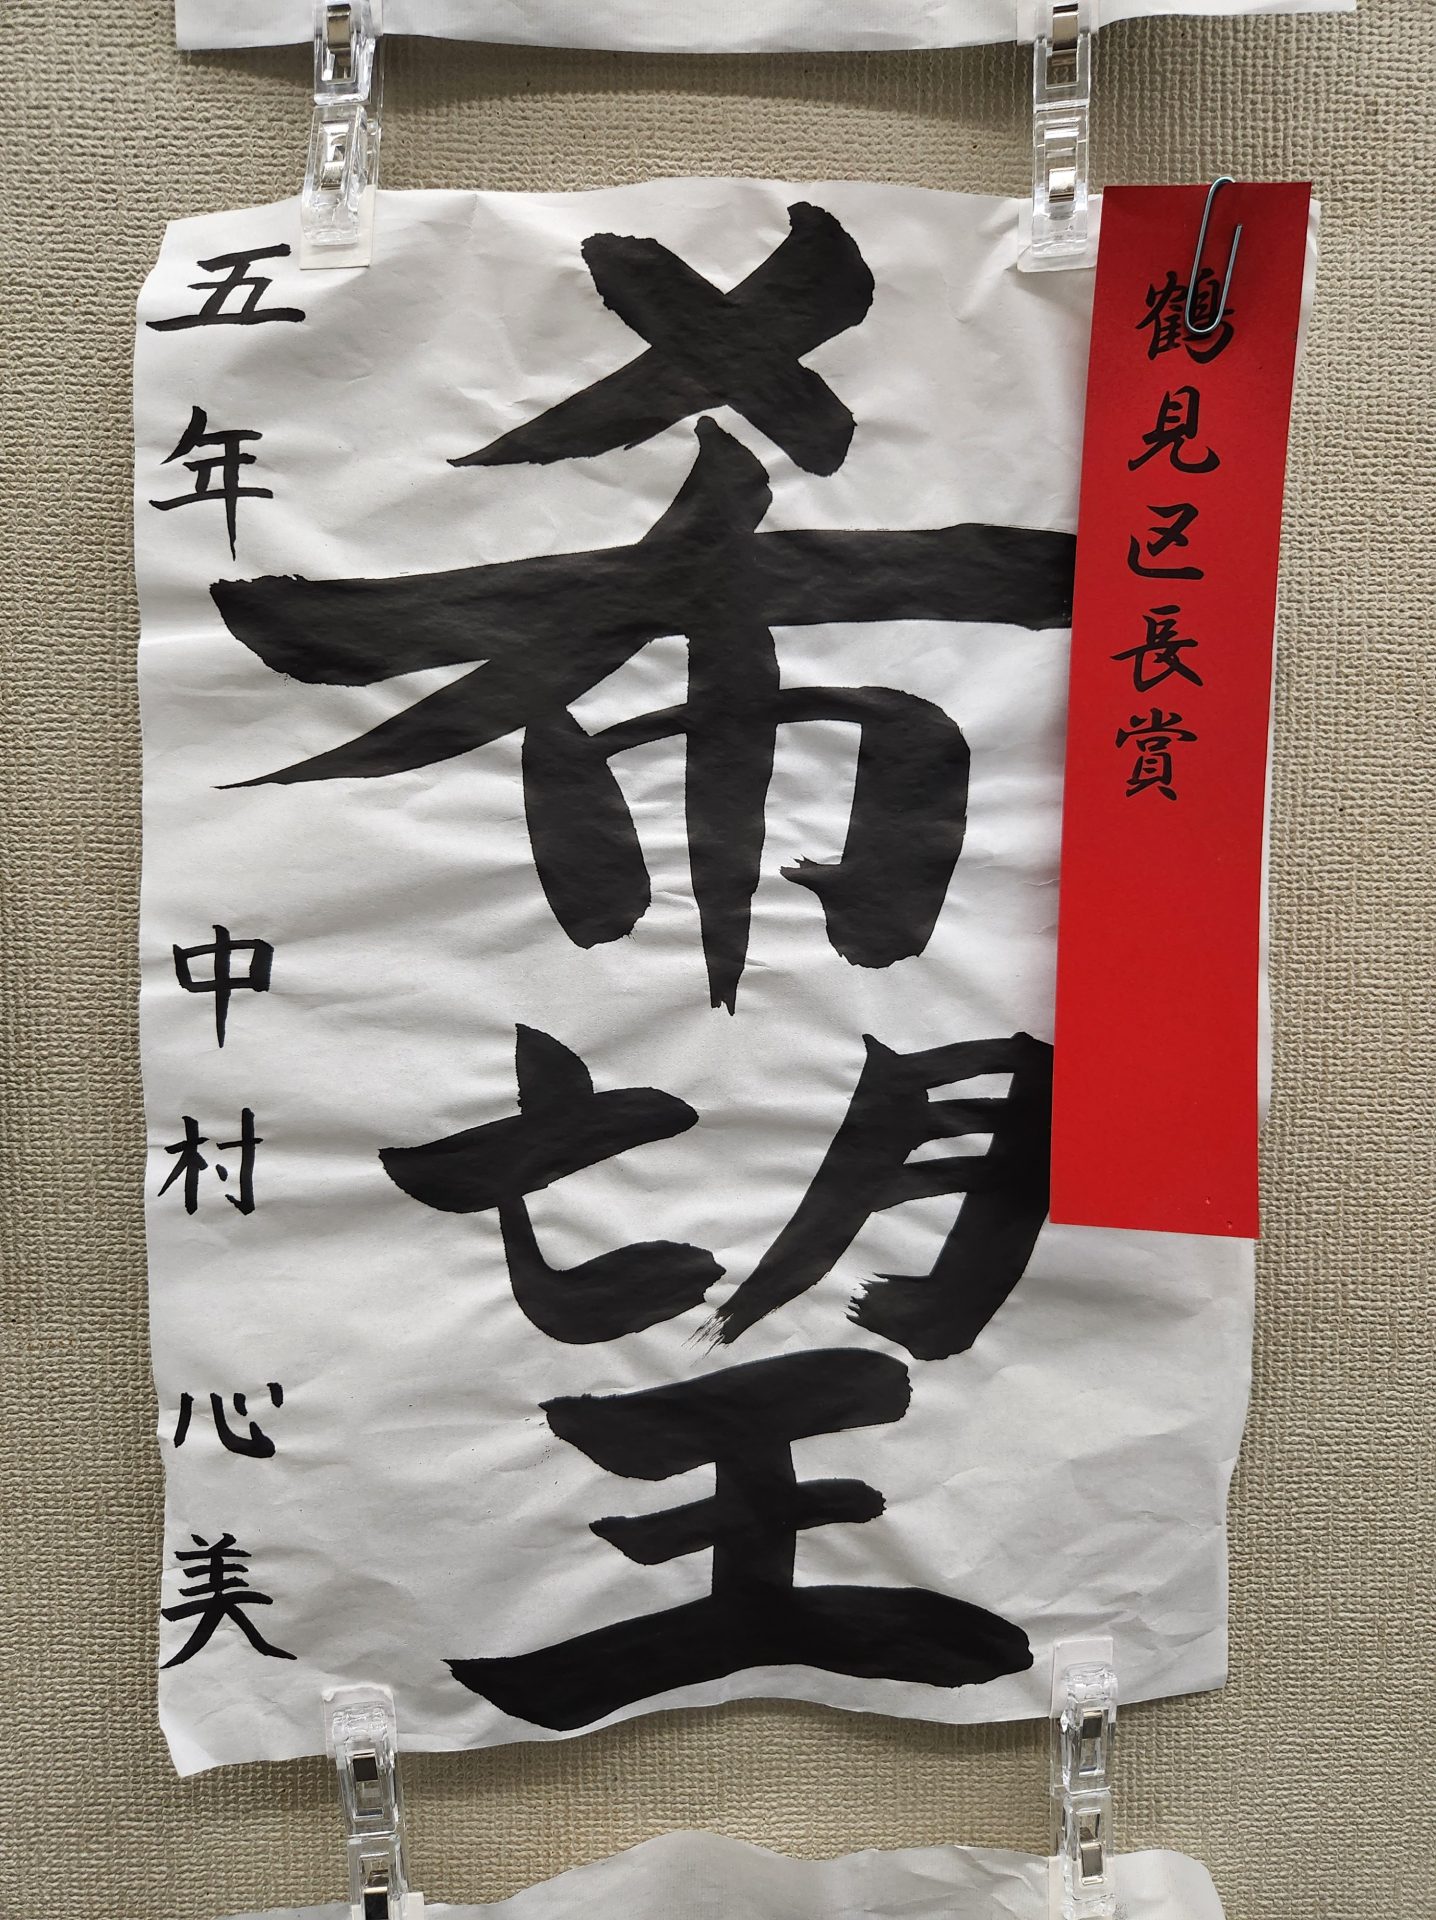 鶴見区長賞
希望
五年 中村 心美